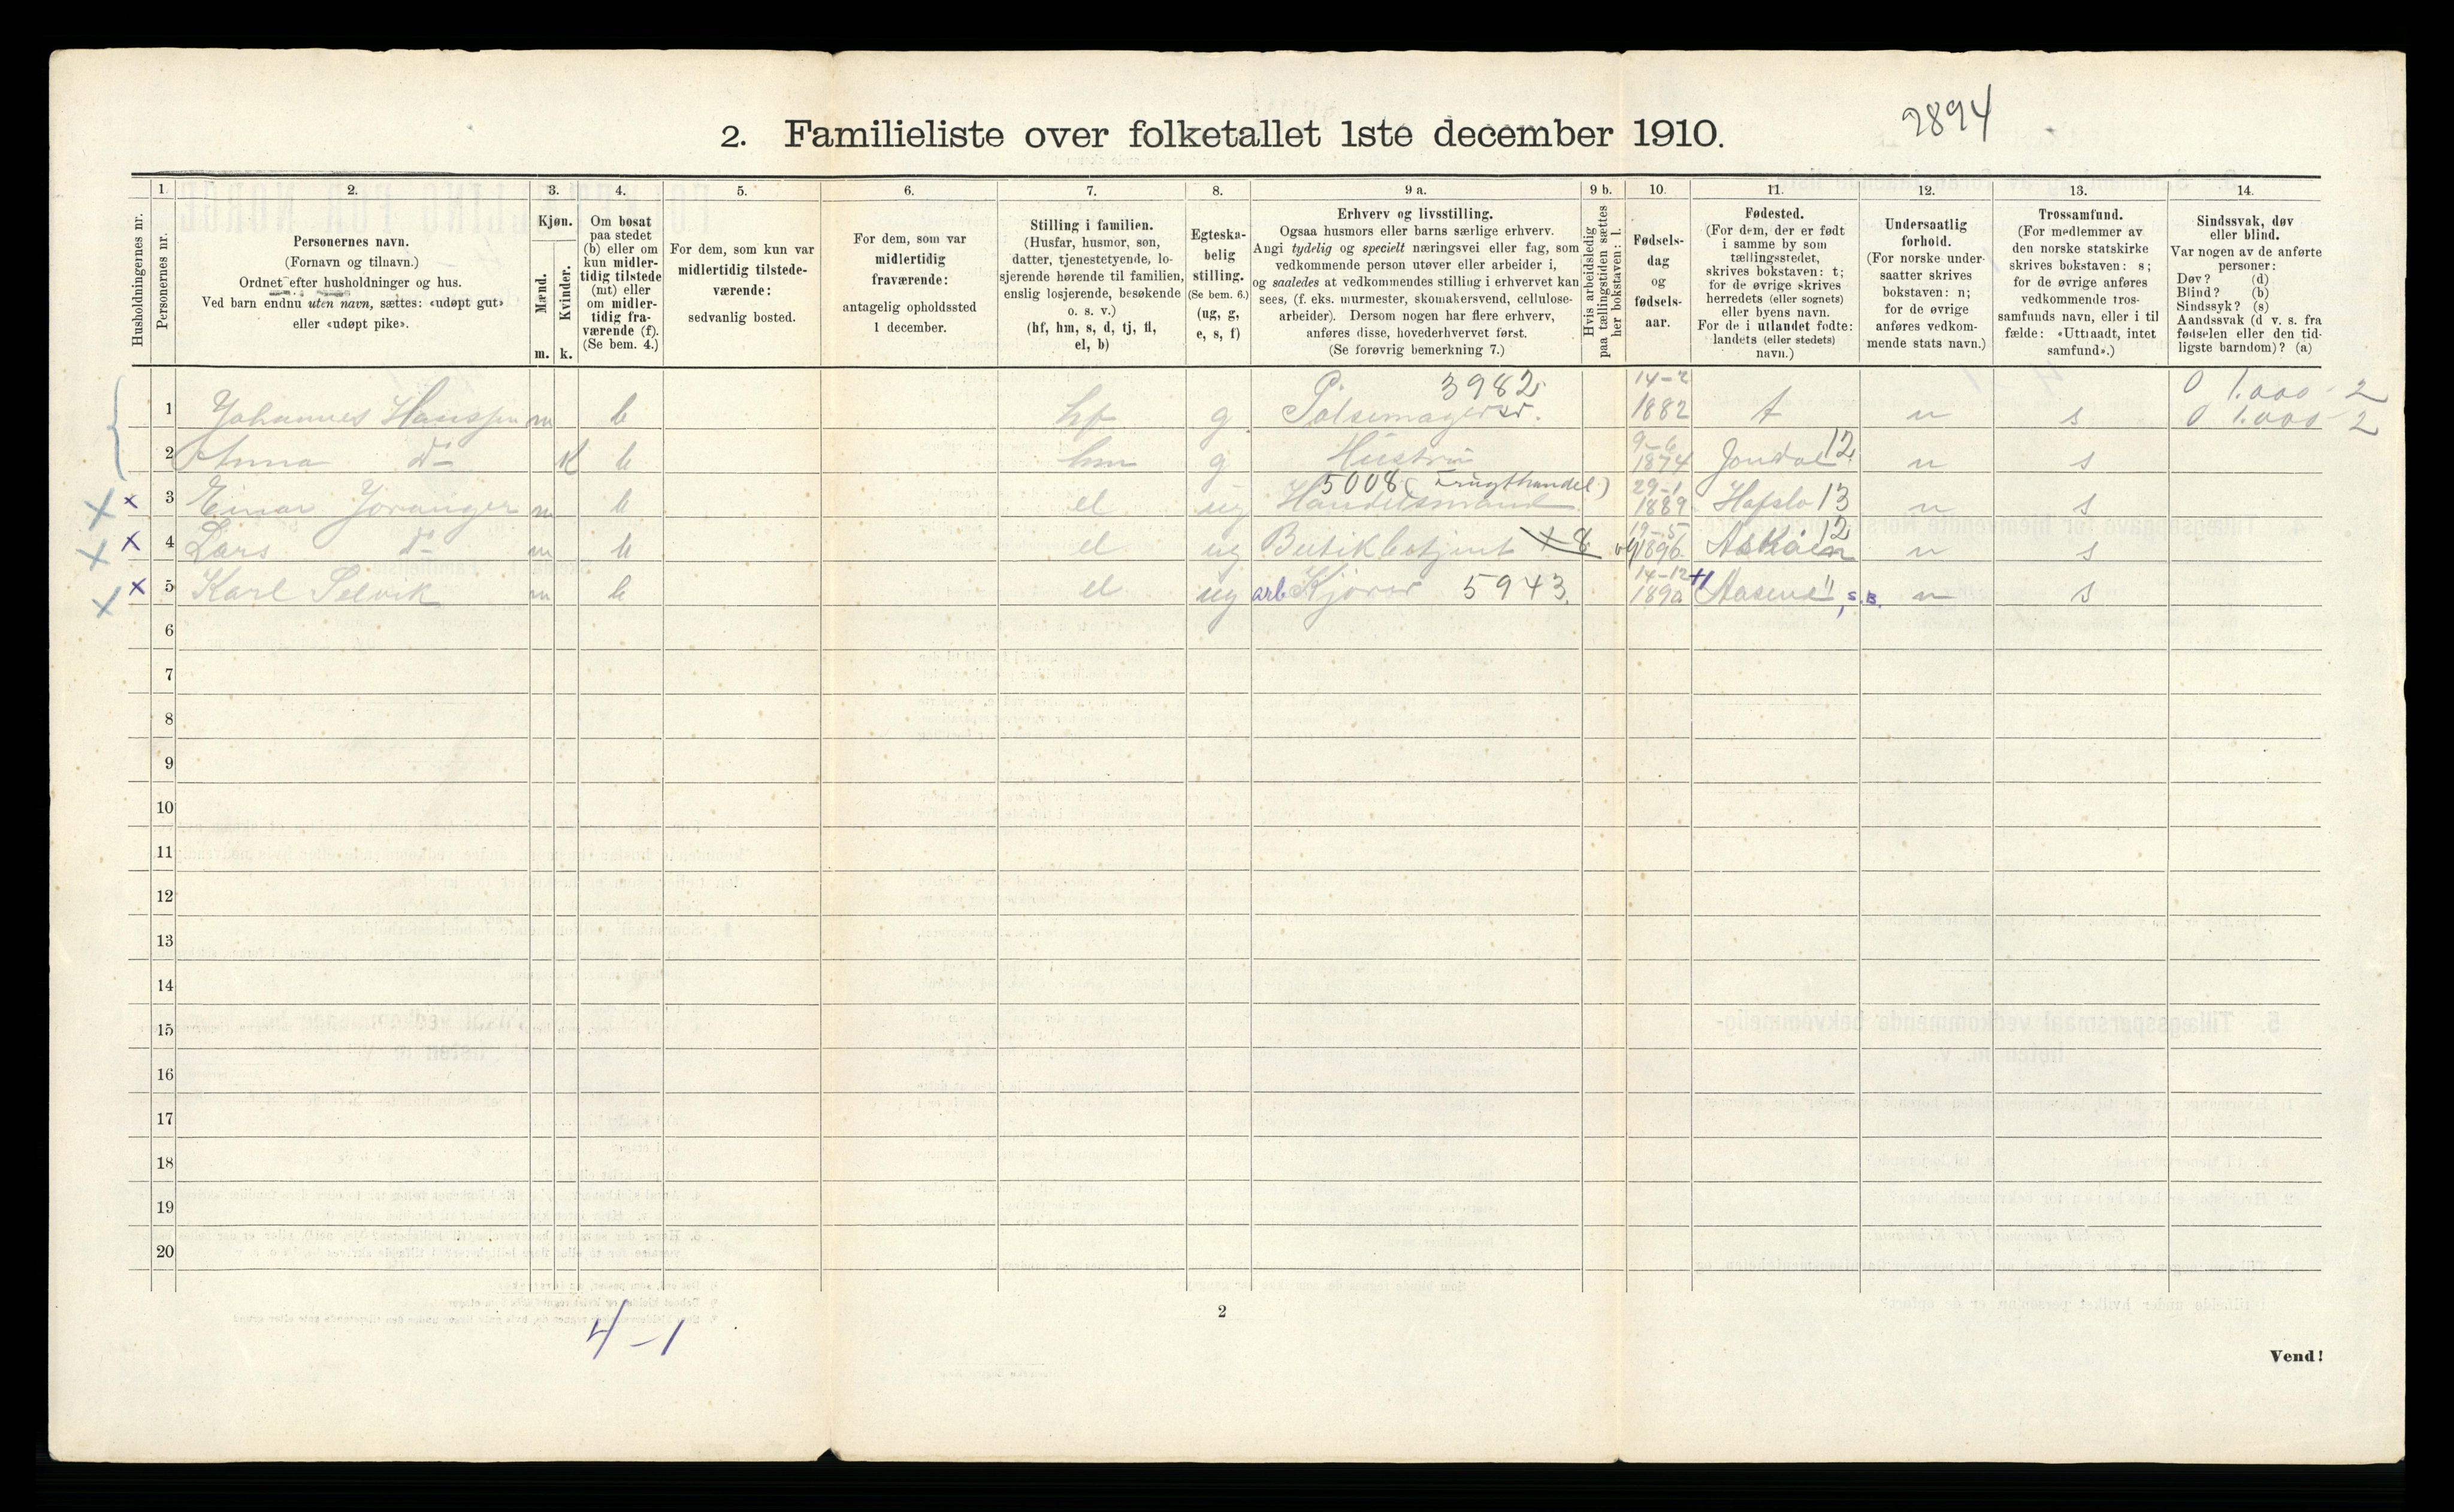 2894
2. Familieliste over folketallet 1ste december 1910.
1. 2. 3. 4. 5. 6. 7. 8. 9 a. 9 b. 10. 11. 12. 13. 14.
Husholdningernes nr.
Personernes nr.
Personernes navn.
(Fornavn og tilnavn.)
Ordnet efter husholdninger og hus.
Ved barn endnu uten navn, sættes: «udøpt gut»
eller «udøpt pike».
Kjøn.
Mænd.
Kvinder.
m. k.
Om bosat
paa stedet
(b) eller om
kun midler-
tidig tilstede
(mt) eller
om midler-
tidig fra-
værende (f).
(Se bem. 4.)
For dem, som kun var
midlertidig tilstede-
værende:
sedvanlig bosted.
For dem, som var
midlertidig
fraværende:
antagelig opholdssted
1 december.
Stilling i familien.
(Husfar, husmor, søn,
datter, tjenestetyende, lo-
sjerende hørende til familien,
enslig losjerende, besøkende
o. s. v.)
(hf, hm, s, d, tj, fl,
el, b)
Egteska-
belig
stilling.
(Se bem. 6.)
(ug, g,
e, s, f)
Erhverv og livsstilling.
Ogsaa husmors eller barns særlige erhverv.
Angi tydelig og specielt næringsvei eller fag, som
vedkommende person utøver eller arbeider i,
og saaledes at vedkommendes stilling i erhvervet kan
sees, (f. eks. murmester, skomakersvend, cellulose-
arbeider). Dersom nogen har flere erhverv,
anføres disse, hovederhvervet først.
(Se forøvrig bemerkning 7.)
Hvis arbeidsledig
paa tællingstiden sættes
her bokstaven: l.
Fødsels-
dag
og
fødsels-
aar.
Fødested.
(For dem, der er født
i samme by som
tællingsstedet,
skrives bokstaven: t;
for de øvrige skrives
herredets (eller sognets)
eller byens navn.
For de i utlandet fødte:
landets (eller stedets)
navn.)
Undersaatlig
forhold.
(For norske under-
saatter skrives
bokstaven: n;
for de øvrige
anføres vedkom-
mende stats navn.)
Trossamfund.
(For medlemmer av
den norske statskirke
skrives bokstaven: s;
for de øvrige anføres
vedkommende tros-
samfunds navn, eller i til
fælde: «Uttraadt, intet
samfund».)
Sindssvak, døv
eller blind.
Var nogen av de anførte
personer:
Døv? (d)
Blind? (b)
Sindssyk? (s)
Aandssvak (d v. s. fra
fødselen eller den tid-
ligste barndom)? (a)
3982 14-2 0 1.000-2
1 Johannes Hanssen m b hf g Pølsemager 1882 t n s 0 1.000-2
9-6
2 Anna do k b hm g Hustru 1874 Jondal 12 n s
5008 (Frugthandel) 29-1
x x 3 Einar Joranger m b el ug Handelsmand 1889 Hafslo 13 n s
19-5 12
x x 4 Lars do m b el ug Butikbetjent 1896 Askøen n s
14-12
x x 5 Karl Selvik m b el ug arb Kjører 5943 1892 Aasene 11 S.B. n s
6
7
8
9
10
11
12
13
14
15
16
17
18
19
20
4-1
2
Vend!